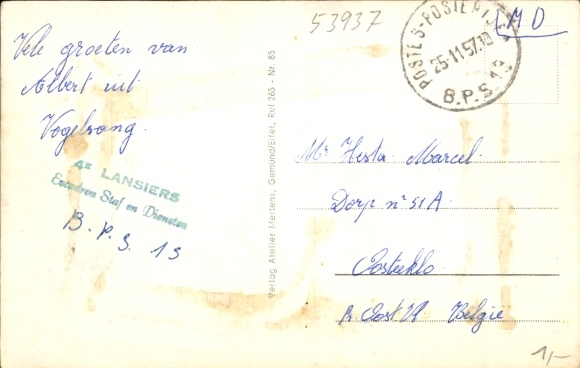 Vele groeten van
Albert uit
Vogelsang.
4E LANSIERS
Escadron Staf en Diensten
B.P.S 13
Verlag Atelier Mertens, Gemünd/Eifel, Ruf 265 - Nr. 85
53937
POSTES-POSTERIJEN
25-11-57
B.P.S. 13
M D
Mr Hesta Marcel.
Dorp n° 51A
Oosteeklo.
Oost Vl. België
1,-